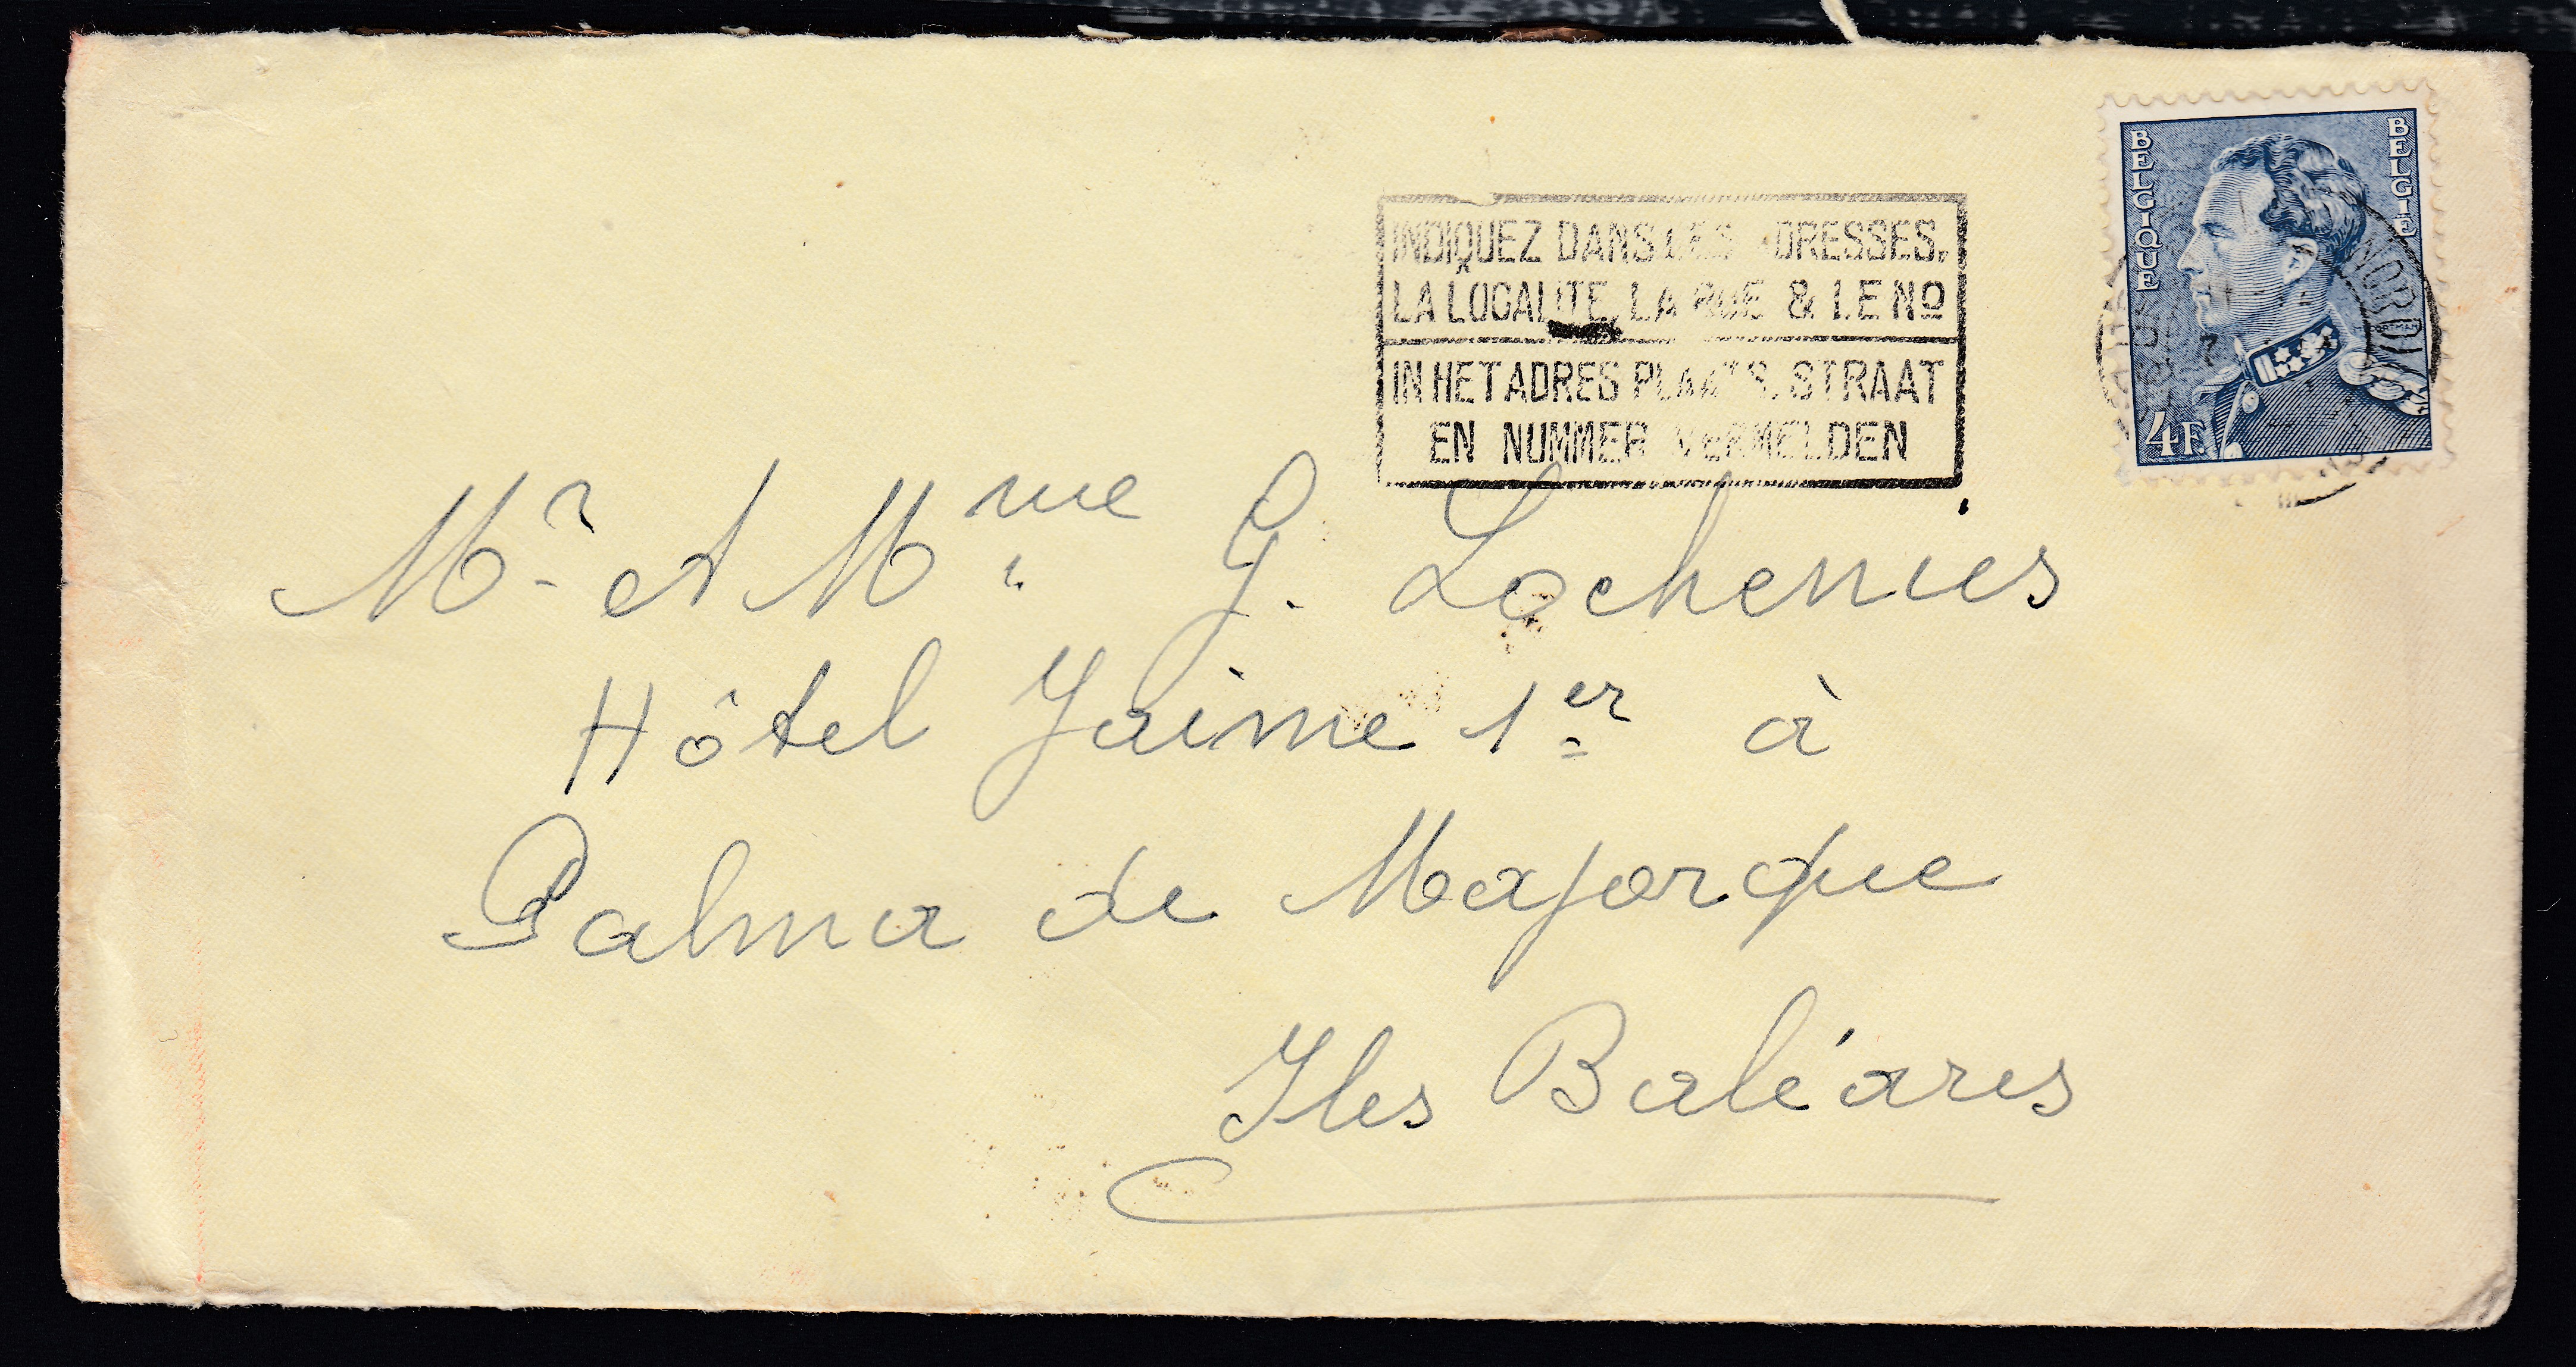 INDIQUEZ DANS LES ADRESSES,
LA LOCALITE, LA RUE & LE No
IN HET ADRES PLAATS, STRAAT
EN NUMMER VERMELDEN
BELGIQUE
BELGIE
4F.
Mr. et Mme. G. Lochenies
Hôtel Jaime 1er à
Palma de Majorque
Iles Baléares